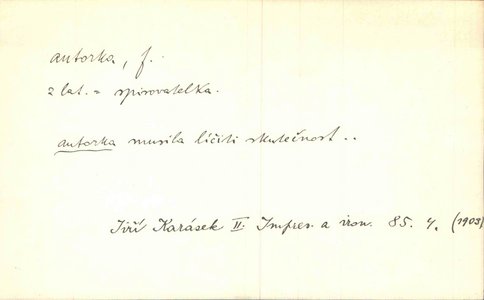 autorka, f.
z lat. = spisovatelka.
autorka musila líčiti skutečnost..
Jiří Karásek II. Impres. a iron. 85. 4. (1903)